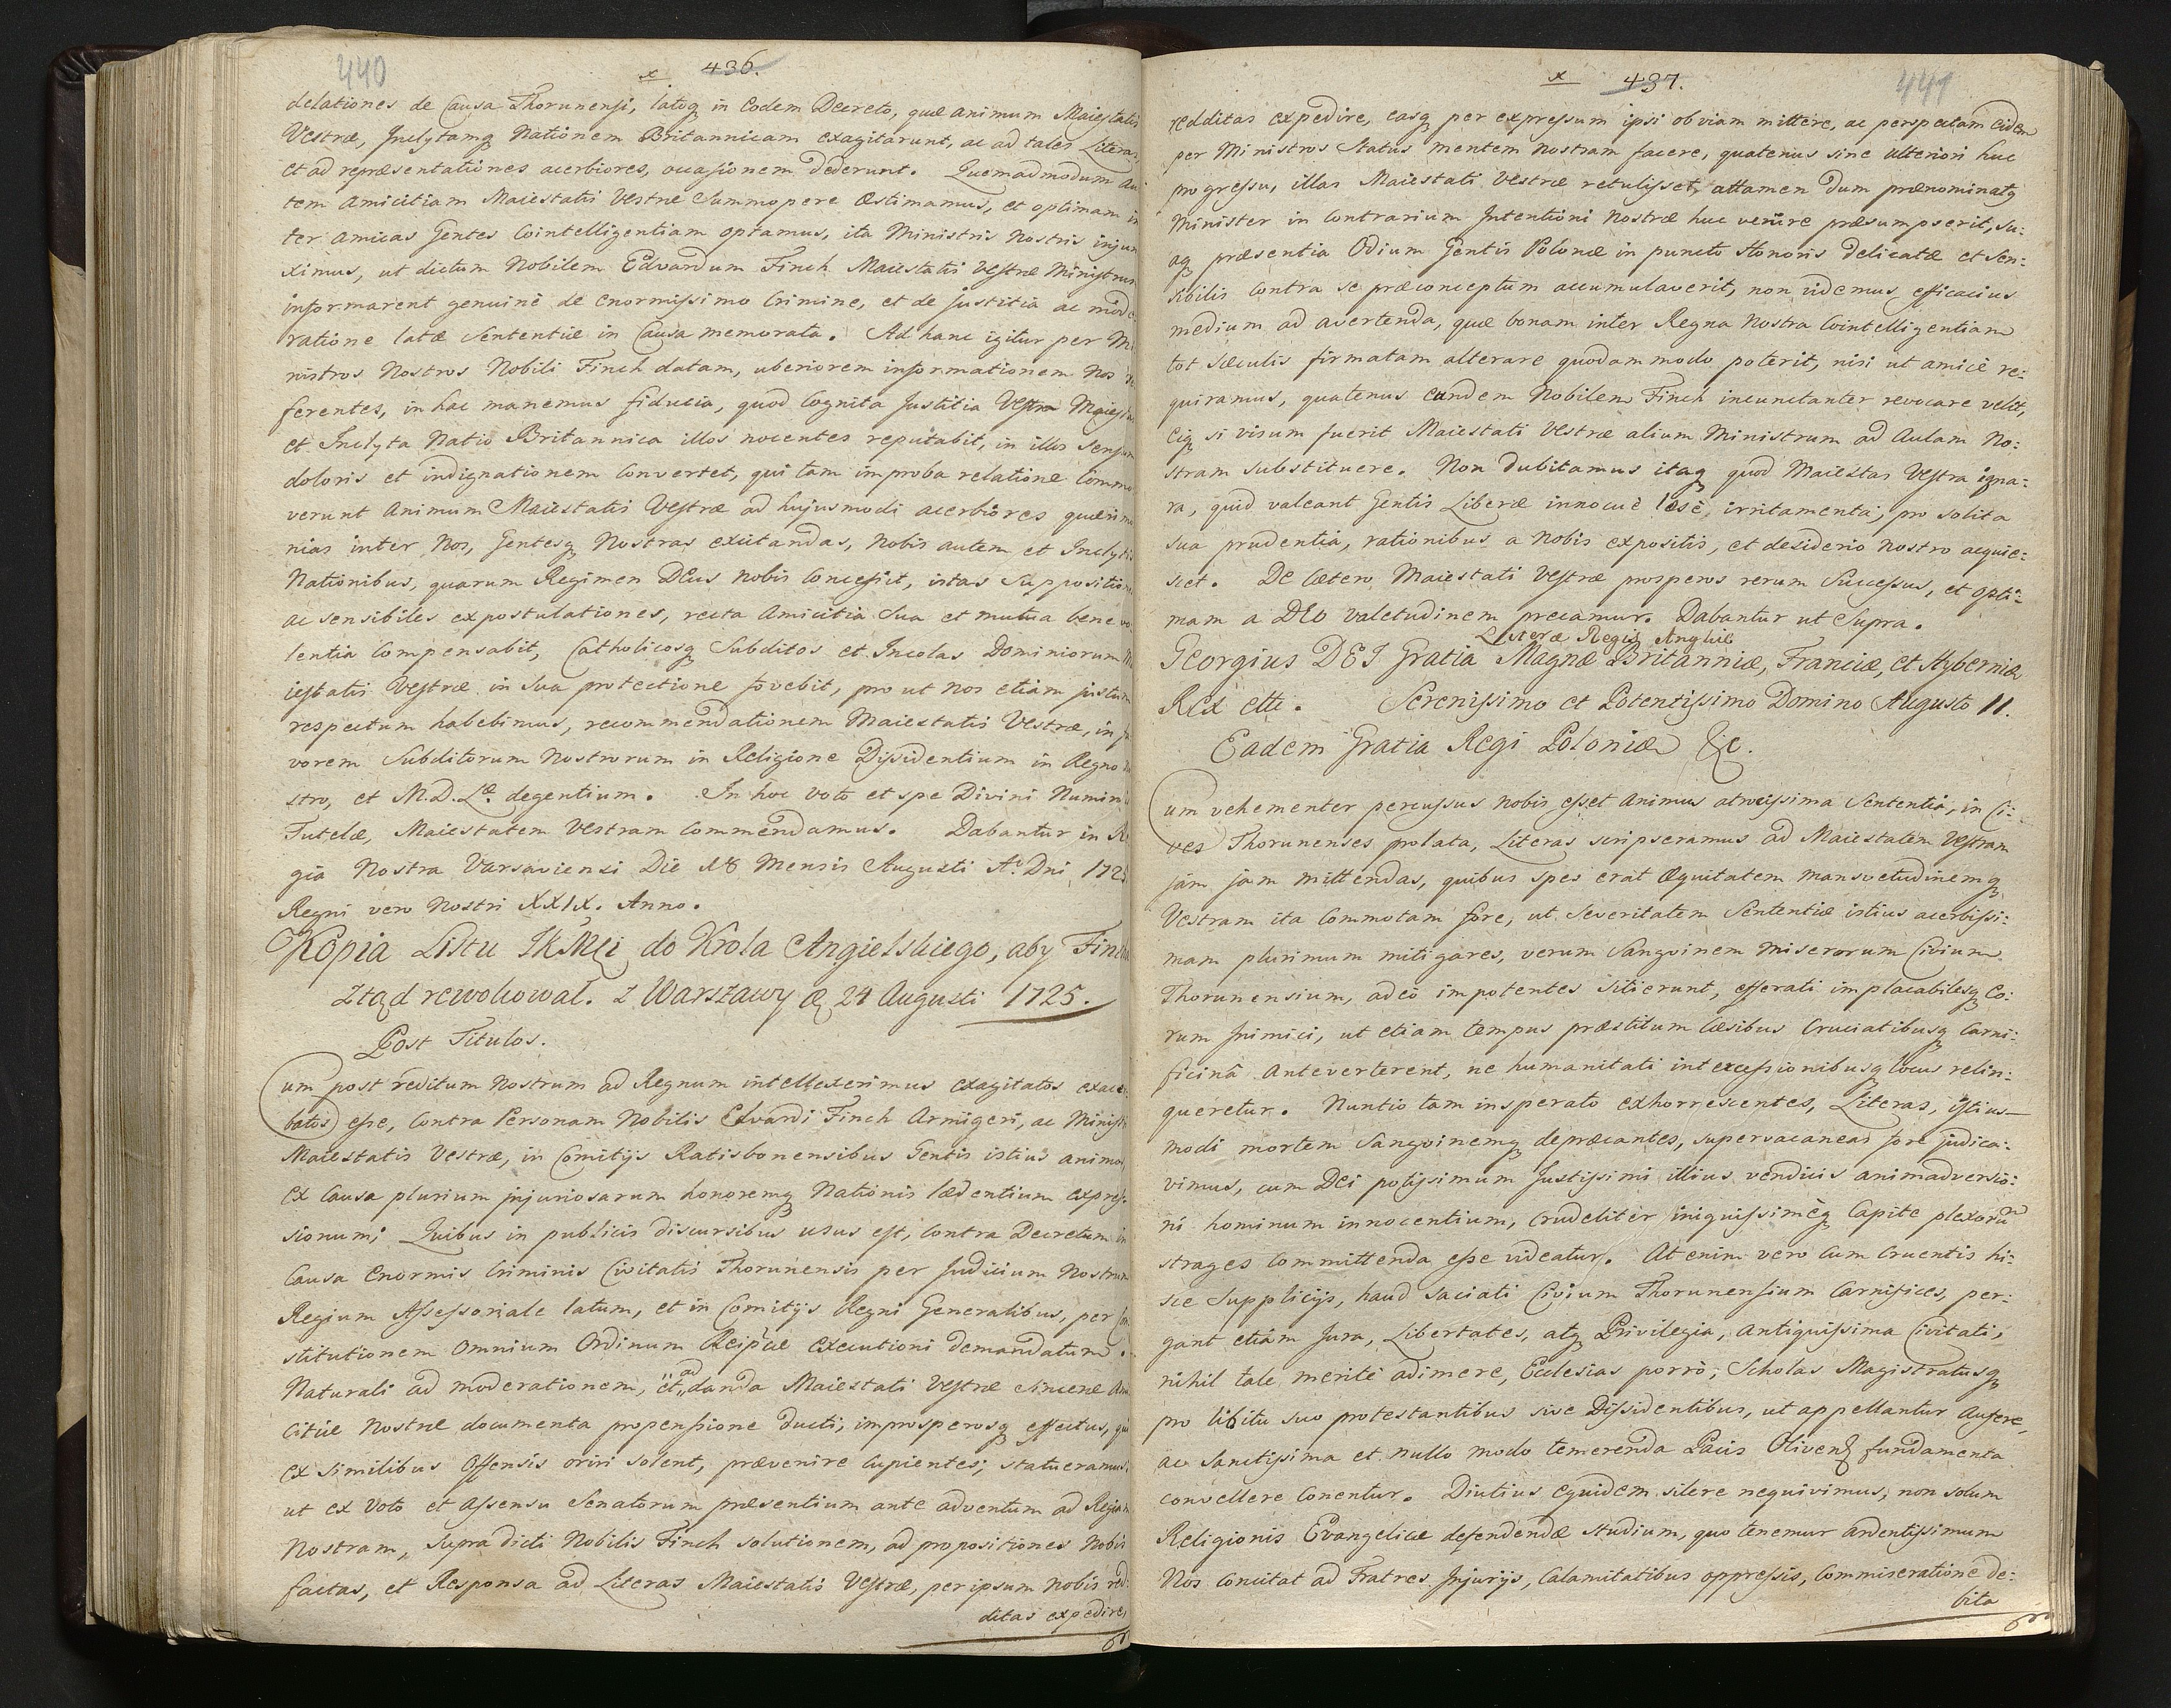 440
x 436.
delationes de Causa Thorunensi, latoq in eodem Decreto, quæ animum Maiestatis
Vestræ, Inclytamq Nationem Britannicam exagitarunt, ac ad tales Literas,
et ad repræsentationes acerbiores, occasionem dederunt. Quemadmodum au
tem Amicitiam Maiestatis Vestræ Summopere Æstimamus, et optimam in
ter amicas Gentes Cointelligentiam optamus, ita Ministris Nostris injun
ximus, ut dictum Nobilem Edvardum Finch Maiestatis Vestræ Ministrum
informarent genuinè de enormissimo Crimine, et de justitia ac mode
ratione latæ Sententiæ in Causa memorata. Ad hanc igitur per Mi
nistros Nostros Nobili Finch datam, uberiorem informationem Nos re
ferentes, in hac manemus fiducia, quod Cognita Justitia Vestra Maiestas
et Inclyta Natio Britannica illos nocentes reputabit, in illos Sensum
doloris et indignationem Convertet, qui tam improba relatione Commo
verunt Animum Maiestatis Vestræ ad hujusmodi acerbiores querimo
nias inter Nos, Gentesq Nostras excitandas, Nobis autem et Inclytis
Nationibus, quarum Regimen DEus nobis Concessit, istas Suppositiones
ac sensibiles expostulationes, recta Amicitia Sua et mutua benevo
lentia Compensabit, Catholicosq Subditos et Incolas Dominiorum Ma
iestatis Vestræ in Sua protectione fovebit, pro ut nos etiam justum
respectum habebimus, recommendationem Maiestatis Vestræ, in fa
vorem Subditorum Nostrorum in Religione Dissidentium in Regno No
stro, et M.D.L&. degentium. In hoc voto et spe Divini Numinis
Tutelæ, Maiestatem Vestram Commendamus. Dabantur in Re
gia Nostra Varsaviensi Die 18 Mensis Augusti Ao. Dni 1725
Regni vero Nostri XXIX. Anno.
Kopia Listu JKMći do Krola Angielskiego, aby Fincha
ztąd rewokował. z Warszawy D 24 Augusti 1725.
Post Titulos.
Cum post reditum Nostrum ad Regnum intellexerimus exagitatos exacer
batos esse, Contra Personam Nobilis Edvardi Finch Armigeri, ac Ministri
Maiestatis Vestræ, in Comitijs Ratisbonensibus Gentis istius animos
ex Causa plurium injuriosarum honoremq Nationis lædentium expres
sionum; Quibus in publicis discursibus usus est, Contra Decretum in
Causa Enormis Criminis Civitatis Thorunensis per Judicium Nostrum
Regium Assessoriale latum, et in Comitijs Regni Generalibus, per Con
stitutionem omnium Ordinum Reipcæ executioni demandatum.
Naturali ad moderationem, et ad danda Maiestati Vestræ Sinceræ Ami
citiæ Nostræ documenta propensione ducti, improsperosq effectus, qui
ex similibus Offensis oriri solent, prævenire Cupientes; statueramus
ut ex Voto et Assensu Senatorum præsentium ante adventum ad Regiam
Nostram, Supra dicti Nobilis Finch solutionem, ad propositiones Nobis
factas, et Responsa ad Literas Maiestatis Vestræ, per ipsum Nobis red
ditas expedire,
441
x 437.
redditas expedire, easq per expressum ipsi obviam mittere, ac perspectam eidem
per Ministros Status mentem Nostram facere, quatenus sine ulteriori huc
progressu, illas Maiestati Vestræ retulisset, attamen dum prænominatq
Minister in Contrarium Intentioni Nostræ huc venire præsumpserit, su:
aq præsentia Odium Gentis Polonæ in puncto Honoris delicatæ et sen:
sibilis Contra se præconceptum accumulaverit, non videmus efficacius
medium ad avertenda, quæ bonam inter Regna Nostra Cointelligentiam
tot sæculis firmatam alterare quodammodo poterit, nisi ut amicè re:
quiramus, quatenus eundem Nobilem Finch incunctanter revocare velit,
eiq si visum fuerit Maiestati Vestræ alium Ministrum ad Aulam No:
stram substituere. Non dubitamus itaq quod Maiestas Vestra igna:
ra, quid valeant Gentis Liberæ innocuè læsè, irritamenta, pro solita
sua prudentia, rationibus a Nobis expositis, et desiderio Nostro acquie:
scet. De cætero Maiestati Vestræ prosperos rerum Successus, et opti:
mam a DEO valetudinem precamur. Dabantur ut Supra.
Literæ Regis Angliæ
Georgius DEI Gratia Magnæ Britanniæ, Franciæ, et Hyberniæ
Rex ettc. Serenissimo et Potentissimo Domino Augusto II.
Eadem Gratia Regi Poloniæ &c.
Cum vehementer percussus nobis esset Animus atrocissima Sententia, in Ci:
ves Thorunenses prolata, Literas scripseramus ad Maiestatem Vestram
jam jam mittendas, quibus spes erat Æquitatem mansvetudinemq
Vestram ita Commotam fore, ut severitatem Sententiæ istius acerbissi:
mam plurimum mitigares, verum Sangvinem miserorum Civium
Thorunensium, adeò impotentes Sitierunt, efferati implacabilesq Eo:
rum Inimici, ut etiam tempus præstitum Cæsibus Cruciatibusq Carni:
ficinâ Anteverterent, ne humanitati intercessionibusq locus relin:
queretur. Nuntio tam insperato exhorrescentes, Literas, istius-
modi mortem Sangvinemq deprecantes, supervacaneas fore judica:
vimus, cum Dei potissimum Justissimi illius vendicis animadversio:
ni hominum innocentium, Crudeliter iniquissimèq Capite plexorum
strages Committenda esse videatur. At enim vero Cum Cruentis hi:
sce Supplicijs, haud saciati Civium Thorunensium Carnifices, per:
gant etiam Jura, Libertates, atq Privilegia, antiquissima Civitati,
nihil tale meritè adimere, Ecclesias porrò, Scholas Magistratusq
pro libitu suo protestantibus sive Dissidentibus, ut appellantur Aufere,
ac Sanctissima et nullo modo temerenda Pacis Olivens fundamenta
convellere Conentur. Diutius equidem silere nequivimus, non solum
Religionis Evangelicæ defendendæ studium, quo tenemur ardentissimum
Nos Concitat ad Fratres Injurijs, Calamitatibus oppressis, Commiseratione de:
bita